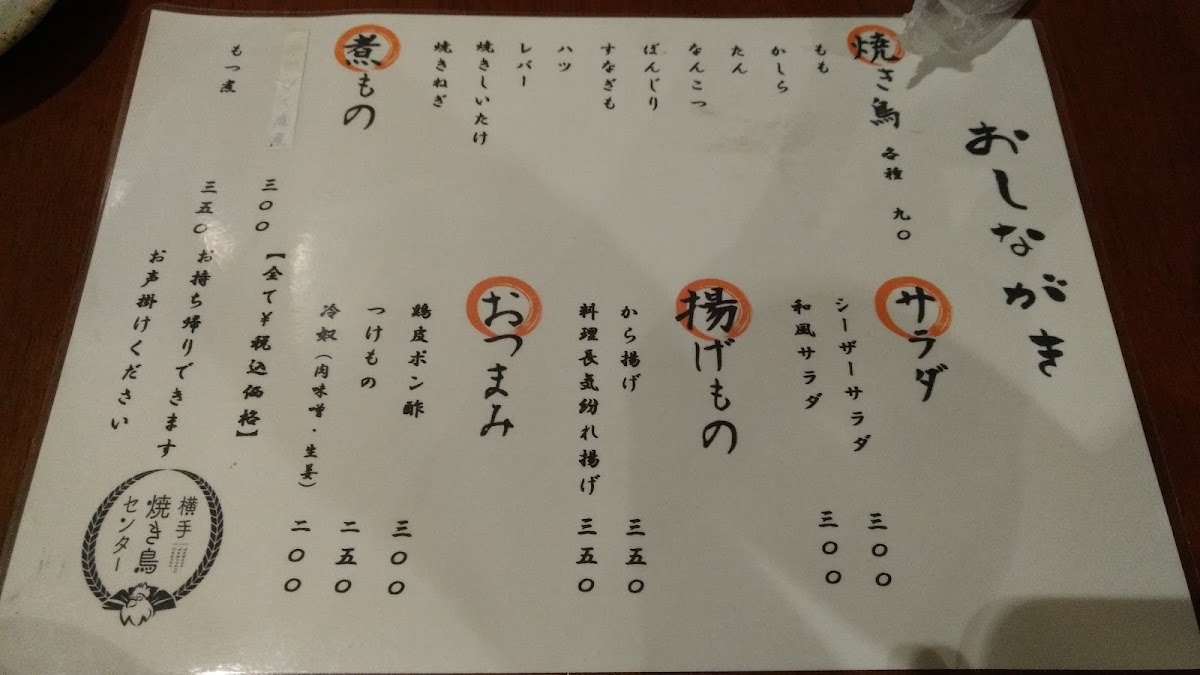 おしながき
焼き鳥 各種 九〇
もも
かしら
たん
なんこつ
ぼんじり
すなぎも
ハツ
レバー
焼きしいたけ
焼きねぎ
煮もの
三〇〇
もつ煮 三五〇
サラダ
シーザーサラダ 三〇〇
和風サラダ 三〇〇
揚げもの
から揚げ 三五〇
料理長気紛れ揚げ 三五〇
おつまみ
鶏皮ポン酢 三〇〇
つけもの 二五〇
冷奴(肉味噌・生姜) 二〇〇
【全て¥税込価格】
お持ち帰りできます
お声掛けください
横手
焼き鳥
センター